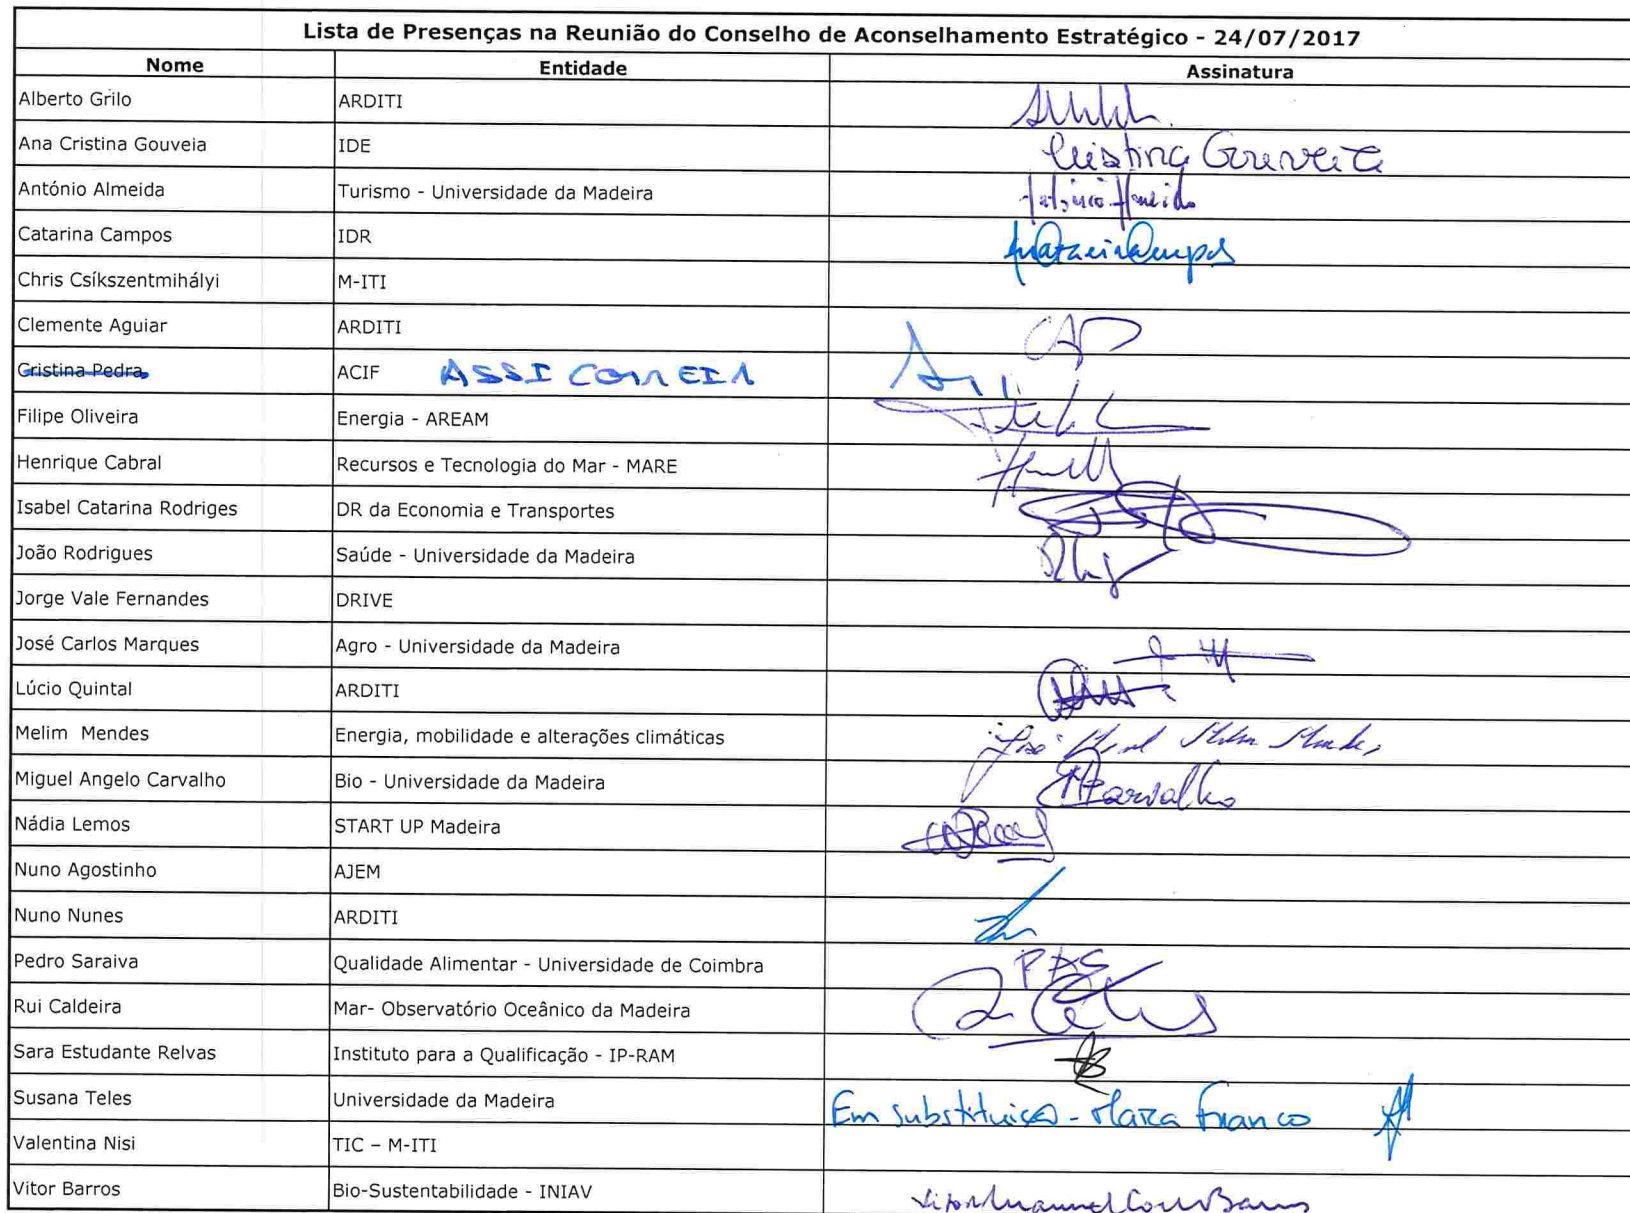 Lista de Presenças na Reunião do Conselho de Aconselhamento Estratégico - 24/07/2017
Nome Entidade Assinatura
Alberto Grilo ARDITI
Ana Cristina Gouveia IDE Cristina Gouveia
António Almeida Turismo - Universidade da Madeira António Almeida
Catarina Campos IDR
Chris Csíkszentmihályi M-ITI
Clemente Aguiar ARDITI
Cristina Pedra ACIF ASSI CORREIA
Filipe Oliveira Energia - AREAM
Henrique Cabral Recursos e Tecnologia do Mar - MARE
Isabel Catarina Rodriges DR da Economia e Transportes
João Rodrigues Saúde - Universidade da Madeira
Jorge Vale Fernandes DRIVE
José Carlos Marques Agro - Universidade da Madeira
Lúcio Quintal ARDITI
Melim Mendes Energia, mobilidade e alterações climáticas José Melim Mendes
Miguel Angelo Carvalho Bio - Universidade da Madeira Carvalho
Nádia Lemos START UP Madeira
Nuno Agostinho AJEM
Nuno Nunes ARDITI
Pedro Saraiva Qualidade Alimentar - Universidade de Coimbra PAS
Rui Caldeira Mar- Observatório Oceânico da Madeira
Sara Estudante Relvas Instituto para a Qualificação - IP-RAM
Susana Teles Universidade da Madeira Em substituição - Mara Franco
Valentina Nisi TIC – M-ITI
Vitor Barros Bio-Sustentabilidade - INIAV Vitor Manuel Barros